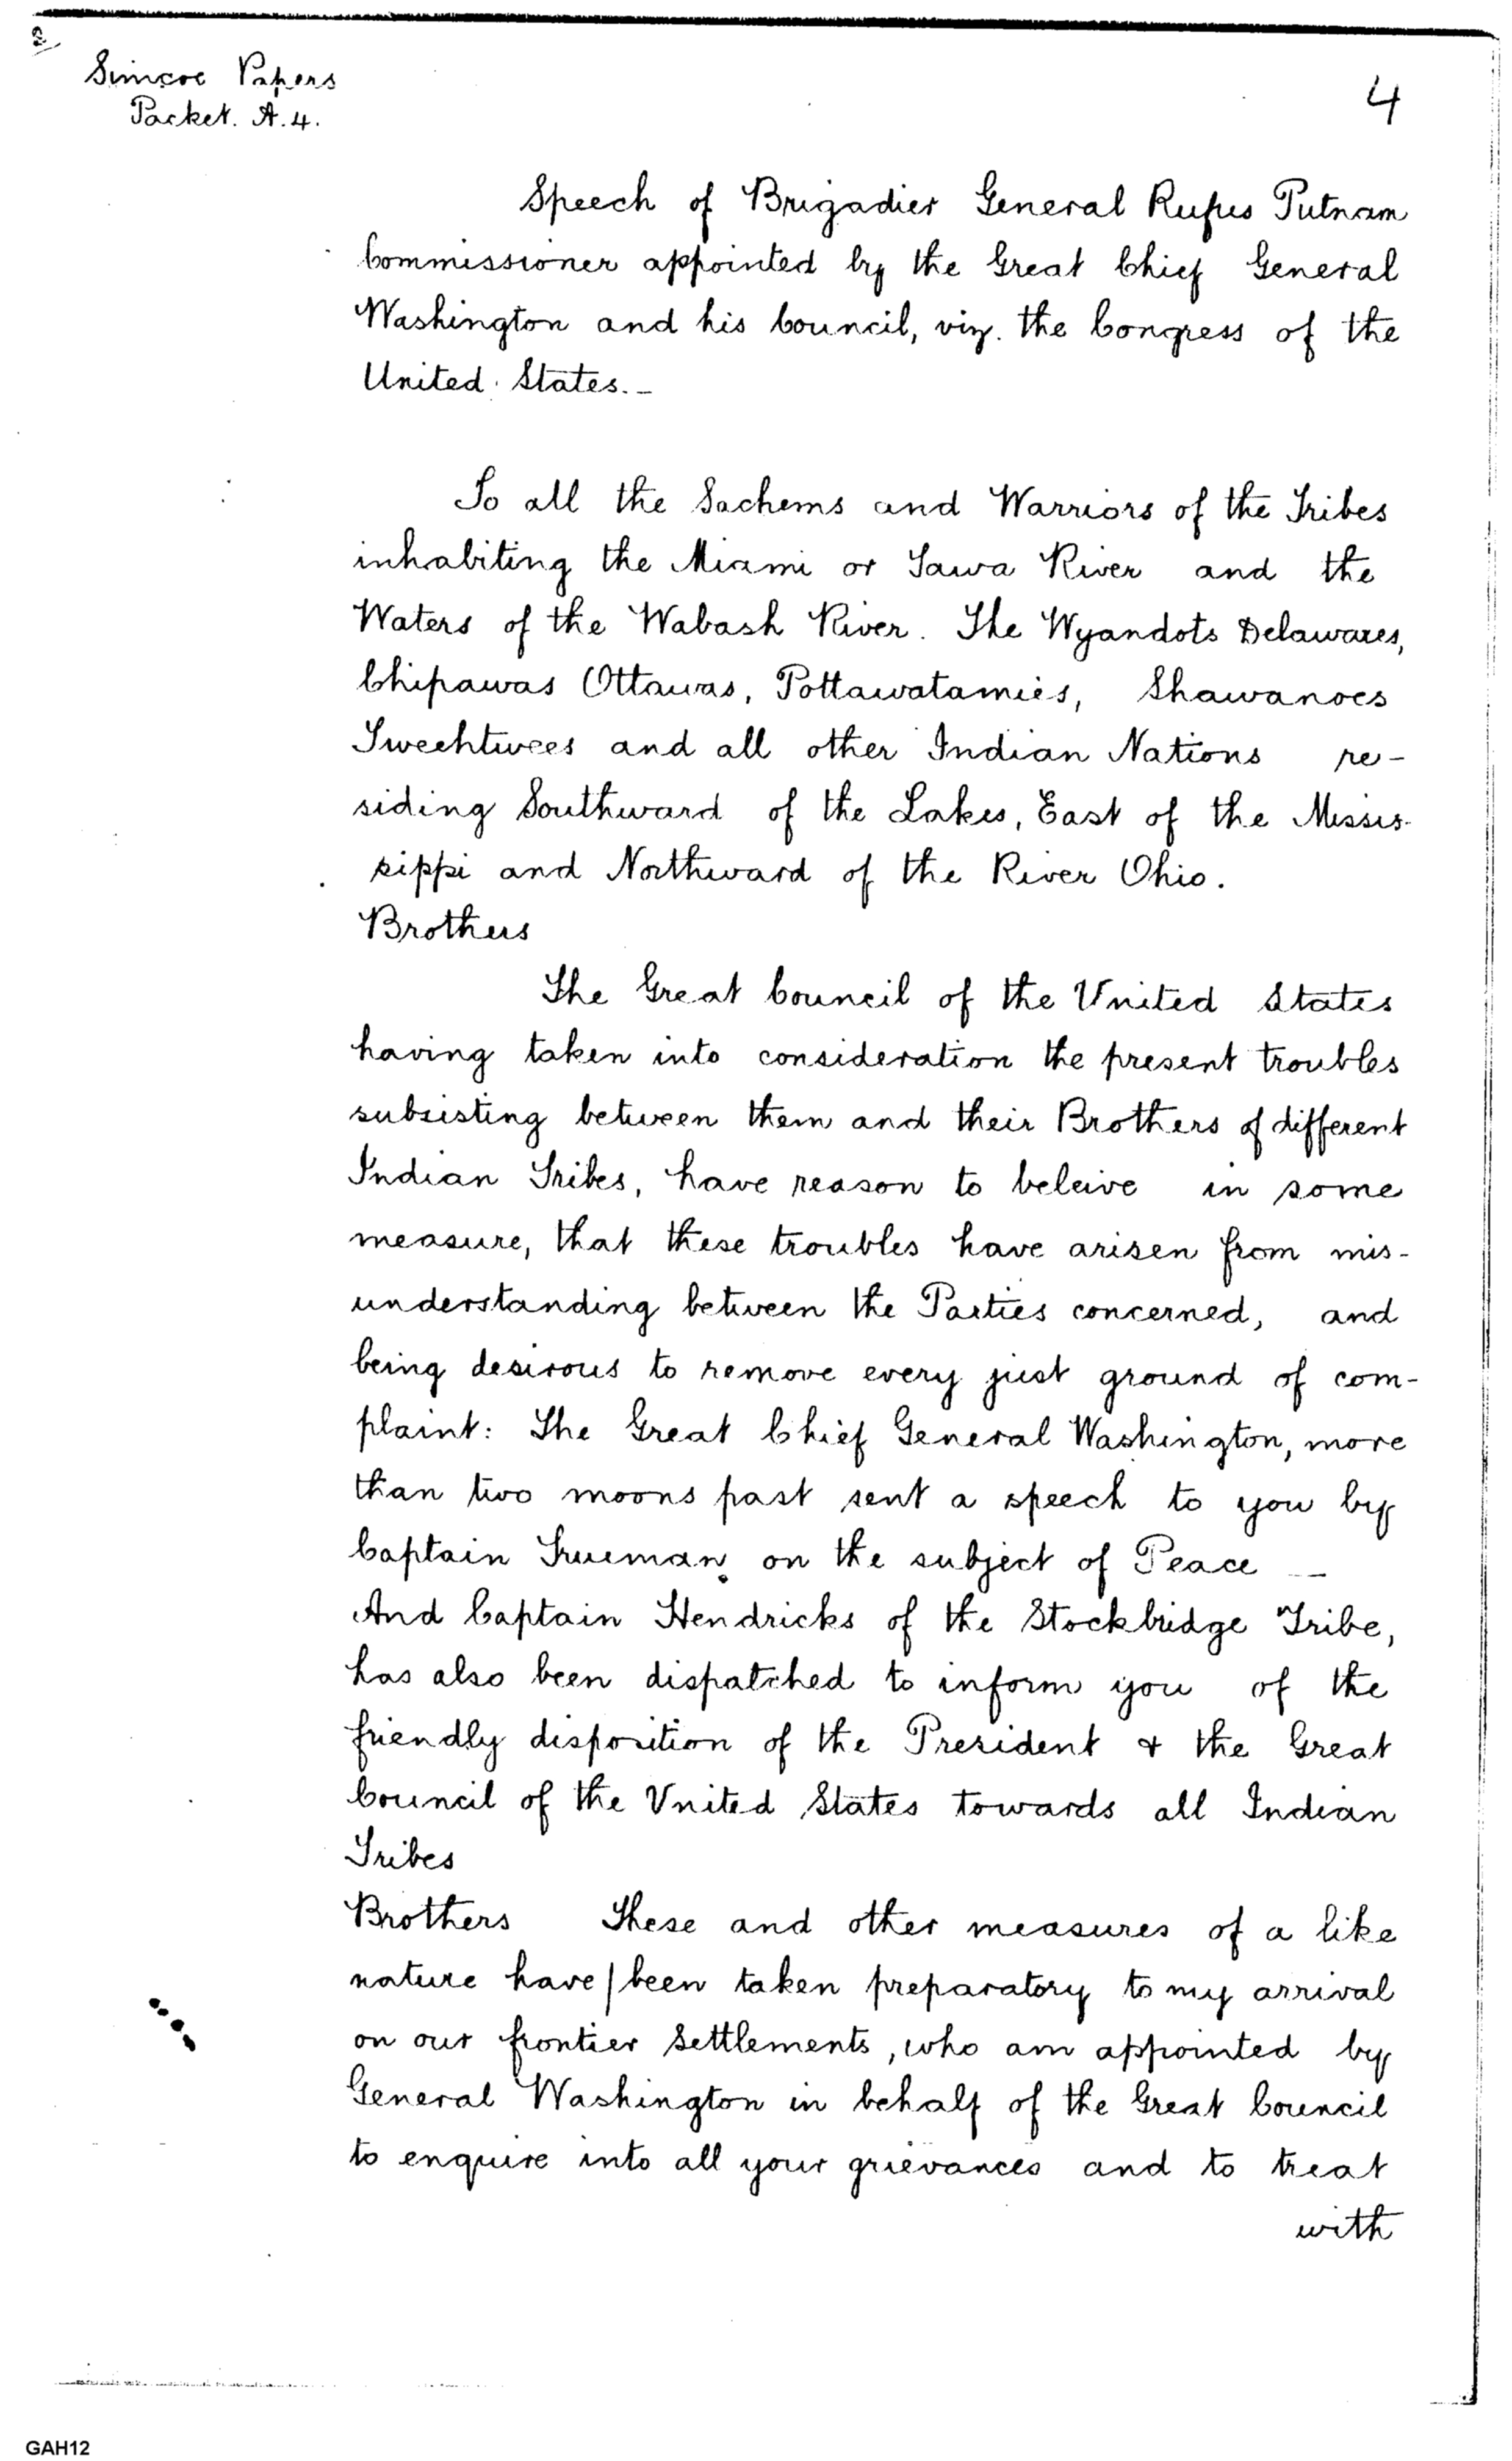 Simcoe Papers
Packet. A.4.
4
Speech of Brigadier General Rufus Putnam
Commissioner appointed by the Great Chief General
Washington and his Council, viz. the Congress of the
United States. _
To all the Sachems and Warriors of the Tribes
inhabiting the Miami or Tawa River and the
Waters of the Wabash River. The Wyandots Delawares,
Chipawas Ottawas, Pottawatamies, Shawanoes
Tweehtwees and all other Indian Nations re-
siding Southward of the Lakes, East of the Missis-
sippi and Northward of the River Ohio.
Brothers
The Great Council of the United States
having taken into consideration the present troubles
subsisting between them and their Brothers of different
Indian Tribes, have reason to beleive in some
measure, that these troubles have arisen from mis-
understanding between the Parties concerned, and
being desirous to remove every just ground of com-
plaint: The Great Chief General Washington, more
than two moons past sent a speech to you by
Captain Trueman on the subject of Peace _
And Captain Hendricks of the Stockbridge Tribe,
has also been dispatched to inform you of the
friendly disposition of the President & the Great
Council of the United States towards all Indian
Tribes
Brothers These and other measures of a like
nature have/been taken preparatory to my arrival
on our frontier Settlements, who am appointed by
General Washington in behalf of the Great Council
to enquire into all your grievances and to treat
with
GAH12